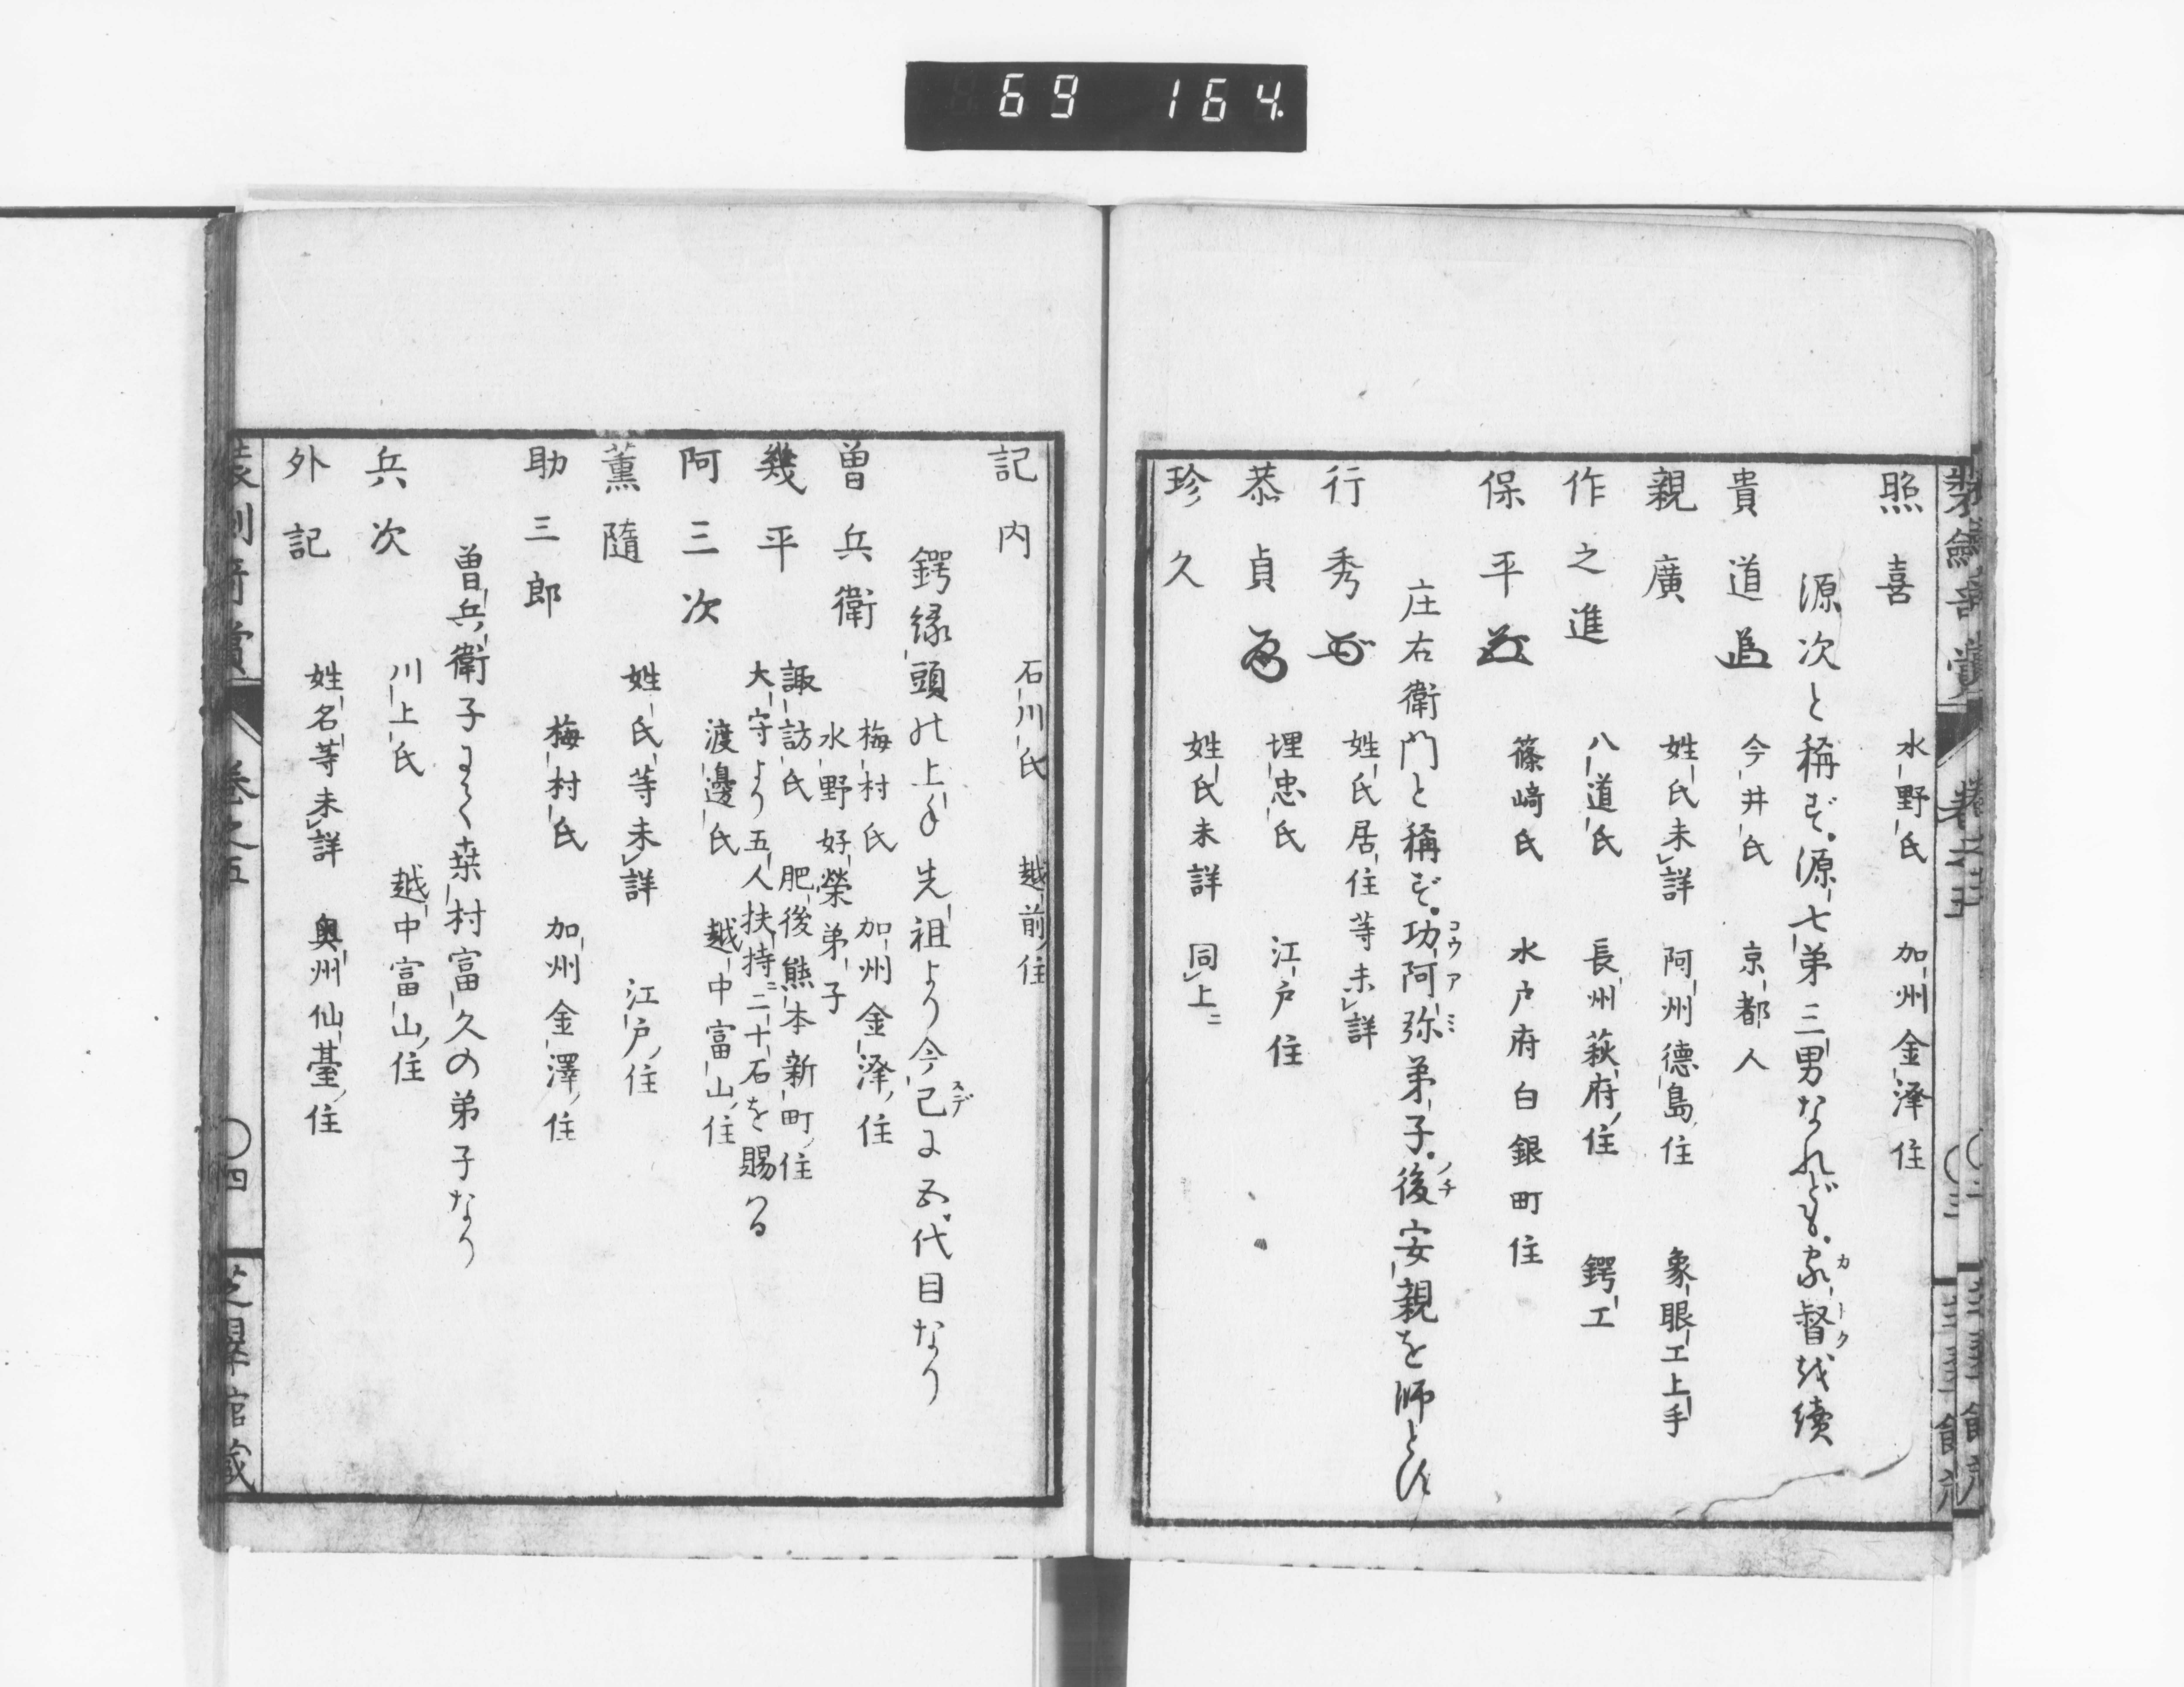 69 164
照喜 水野氏 加州金澤住
源次と称ず。源七弟三男なれども。家督を續
貴道 今井氏 京都人
親廣 姓氏未詳 阿州徳島住 象眼工上手
作之進 八道氏 長州萩府住 鍔工
保平 篠﨑氏 水戸府白銀町住
庄右衛門と稱ず。功阿弥弟子。後安親を師とす
コウアミ
ノチ
行秀 姓氏居住等未詳
恭貞 埋忠氏 江戸住
珍久 姓氏未詳 同上ニ
記内 石川氏 越前住
鍔縁頭の上手先祖より今已に五代目なり
スデ
曽兵衛 梅村氏 加州金澤住
水野好榮弟子
幾平 諏訪氏 肥後熊本新町住
大守より五人扶持二十石を賜る
阿三次 渡邊氏 越中富山住
薫随 姓氏等未詳 江戸住
助三郎 梅村氏 加州金澤住
曽兵衛子にて桒村富久の弟子なり
兵次 川上氏 越中富山住
外記 姓名等未詳 奥州仙臺住
装劍奇賞 巻之五 〇四 芝翠館蔵